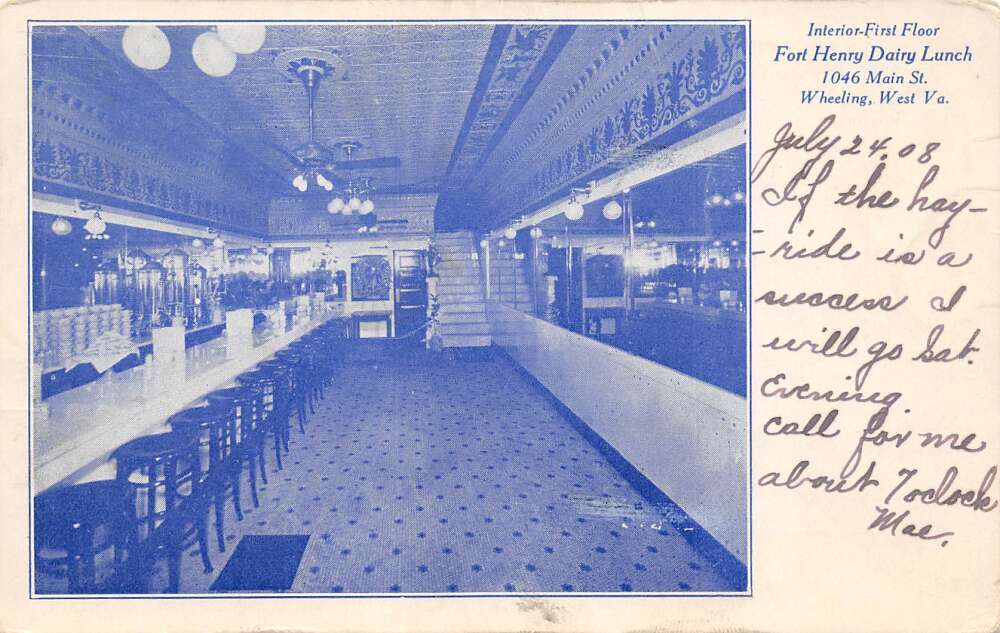 Interior-First Floor
Fort Henry Dairy Lunch
1046 Main St.
Wheeling, West Va.
July 24.08
If the hay-
-ride is a
success I
will go Sat.
Evening.
call for me
about 7 oclock
Mae.